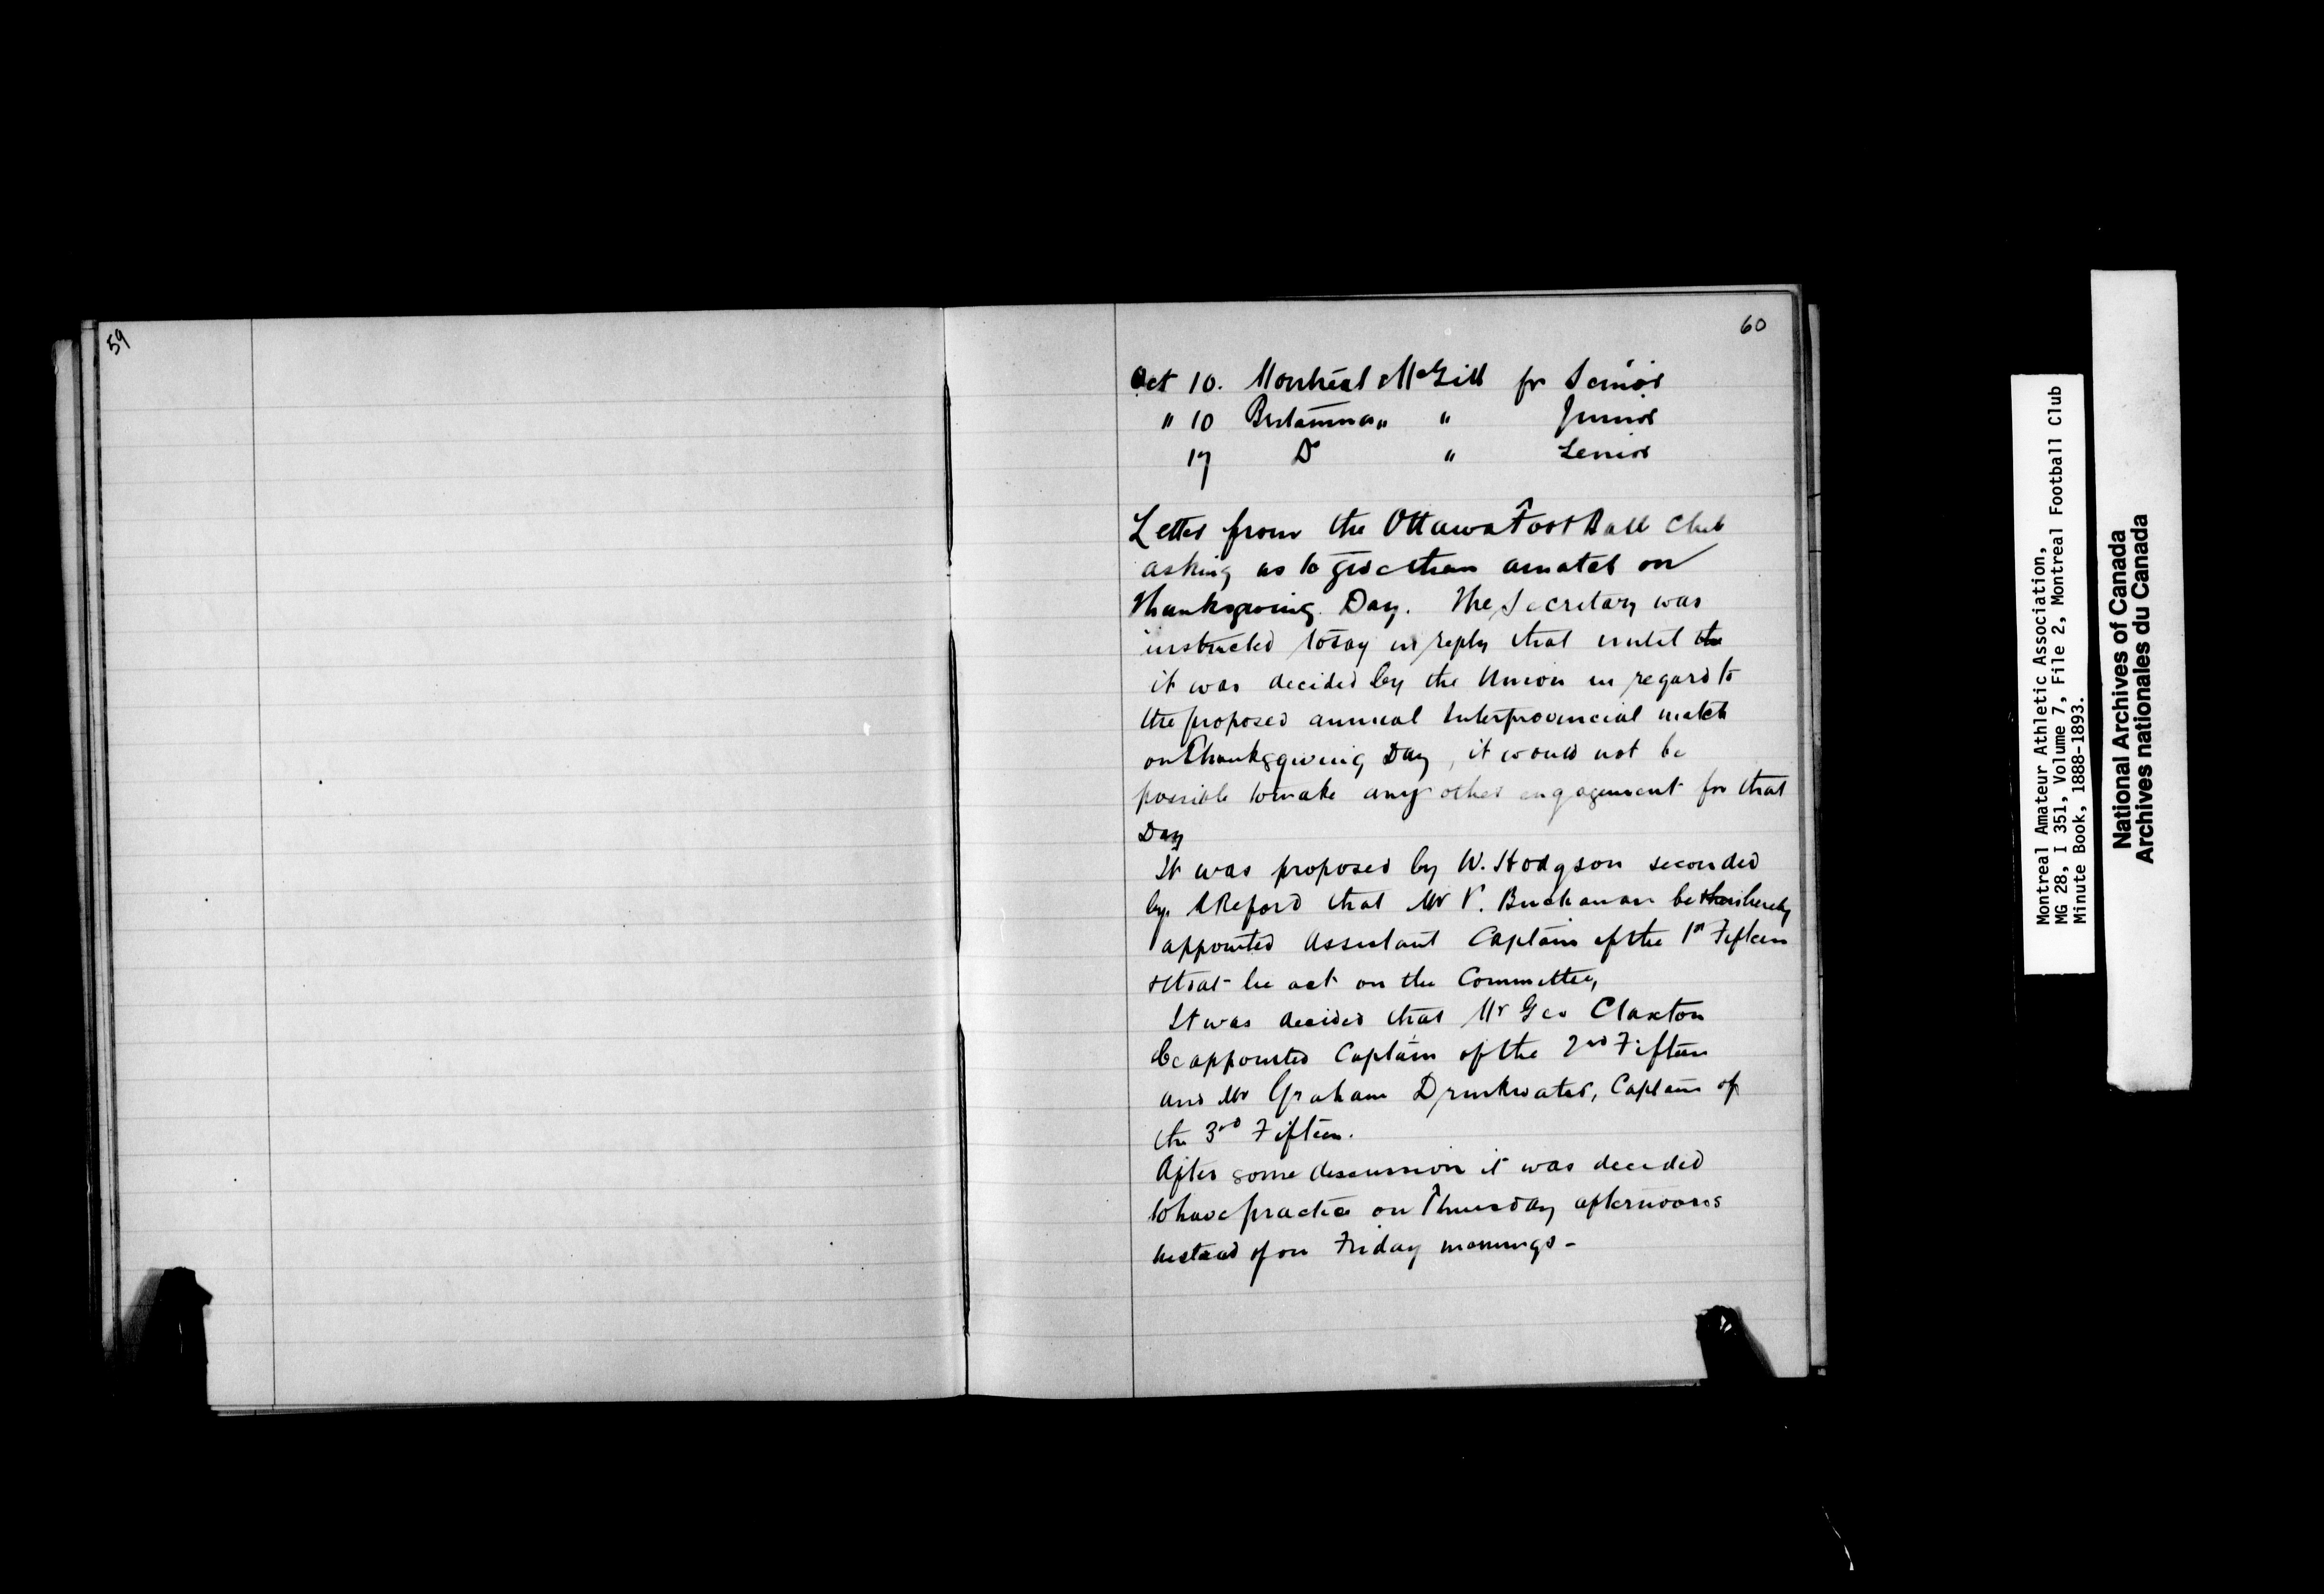 59
60
Oct 10. Montreal McGill for Senior
" 10 Britannia " " Junior
17 Do " Senior
Letter from the Ottawa Foot Ball Club
asking us to give them a match on
Thanksgiving Day. The Secretary was
instructed to say in reply that until the
it was decided by the Union in regard to
the proposed annual Interprovincial match
on Thanksgiving Day, it would not be
possible to make any other engagement for that
Day
It was proposed by W. Hodgson seconded
by A Reford that Mr V. Buchanan be hereby
appointed Assistant Captain of the 1st Fifteen
& that he act on the Committee,
It was decided that Mr Geo Claxton
be appointed Captain of the 2nd Fifteen
and Mr Graham Drinkwater, Captain of
the 3rd Fifteen.
After some discussion it was decided
to have practice on Thursday afternoons
instead of on Friday mornings -
Montreal Amateur Athletic Association,
MG 28, I 351, Volume 7, File 2, Montreal Football Club
Minute Book, 1888-1893.
National Archives of Canada
Archives nationales du Canada